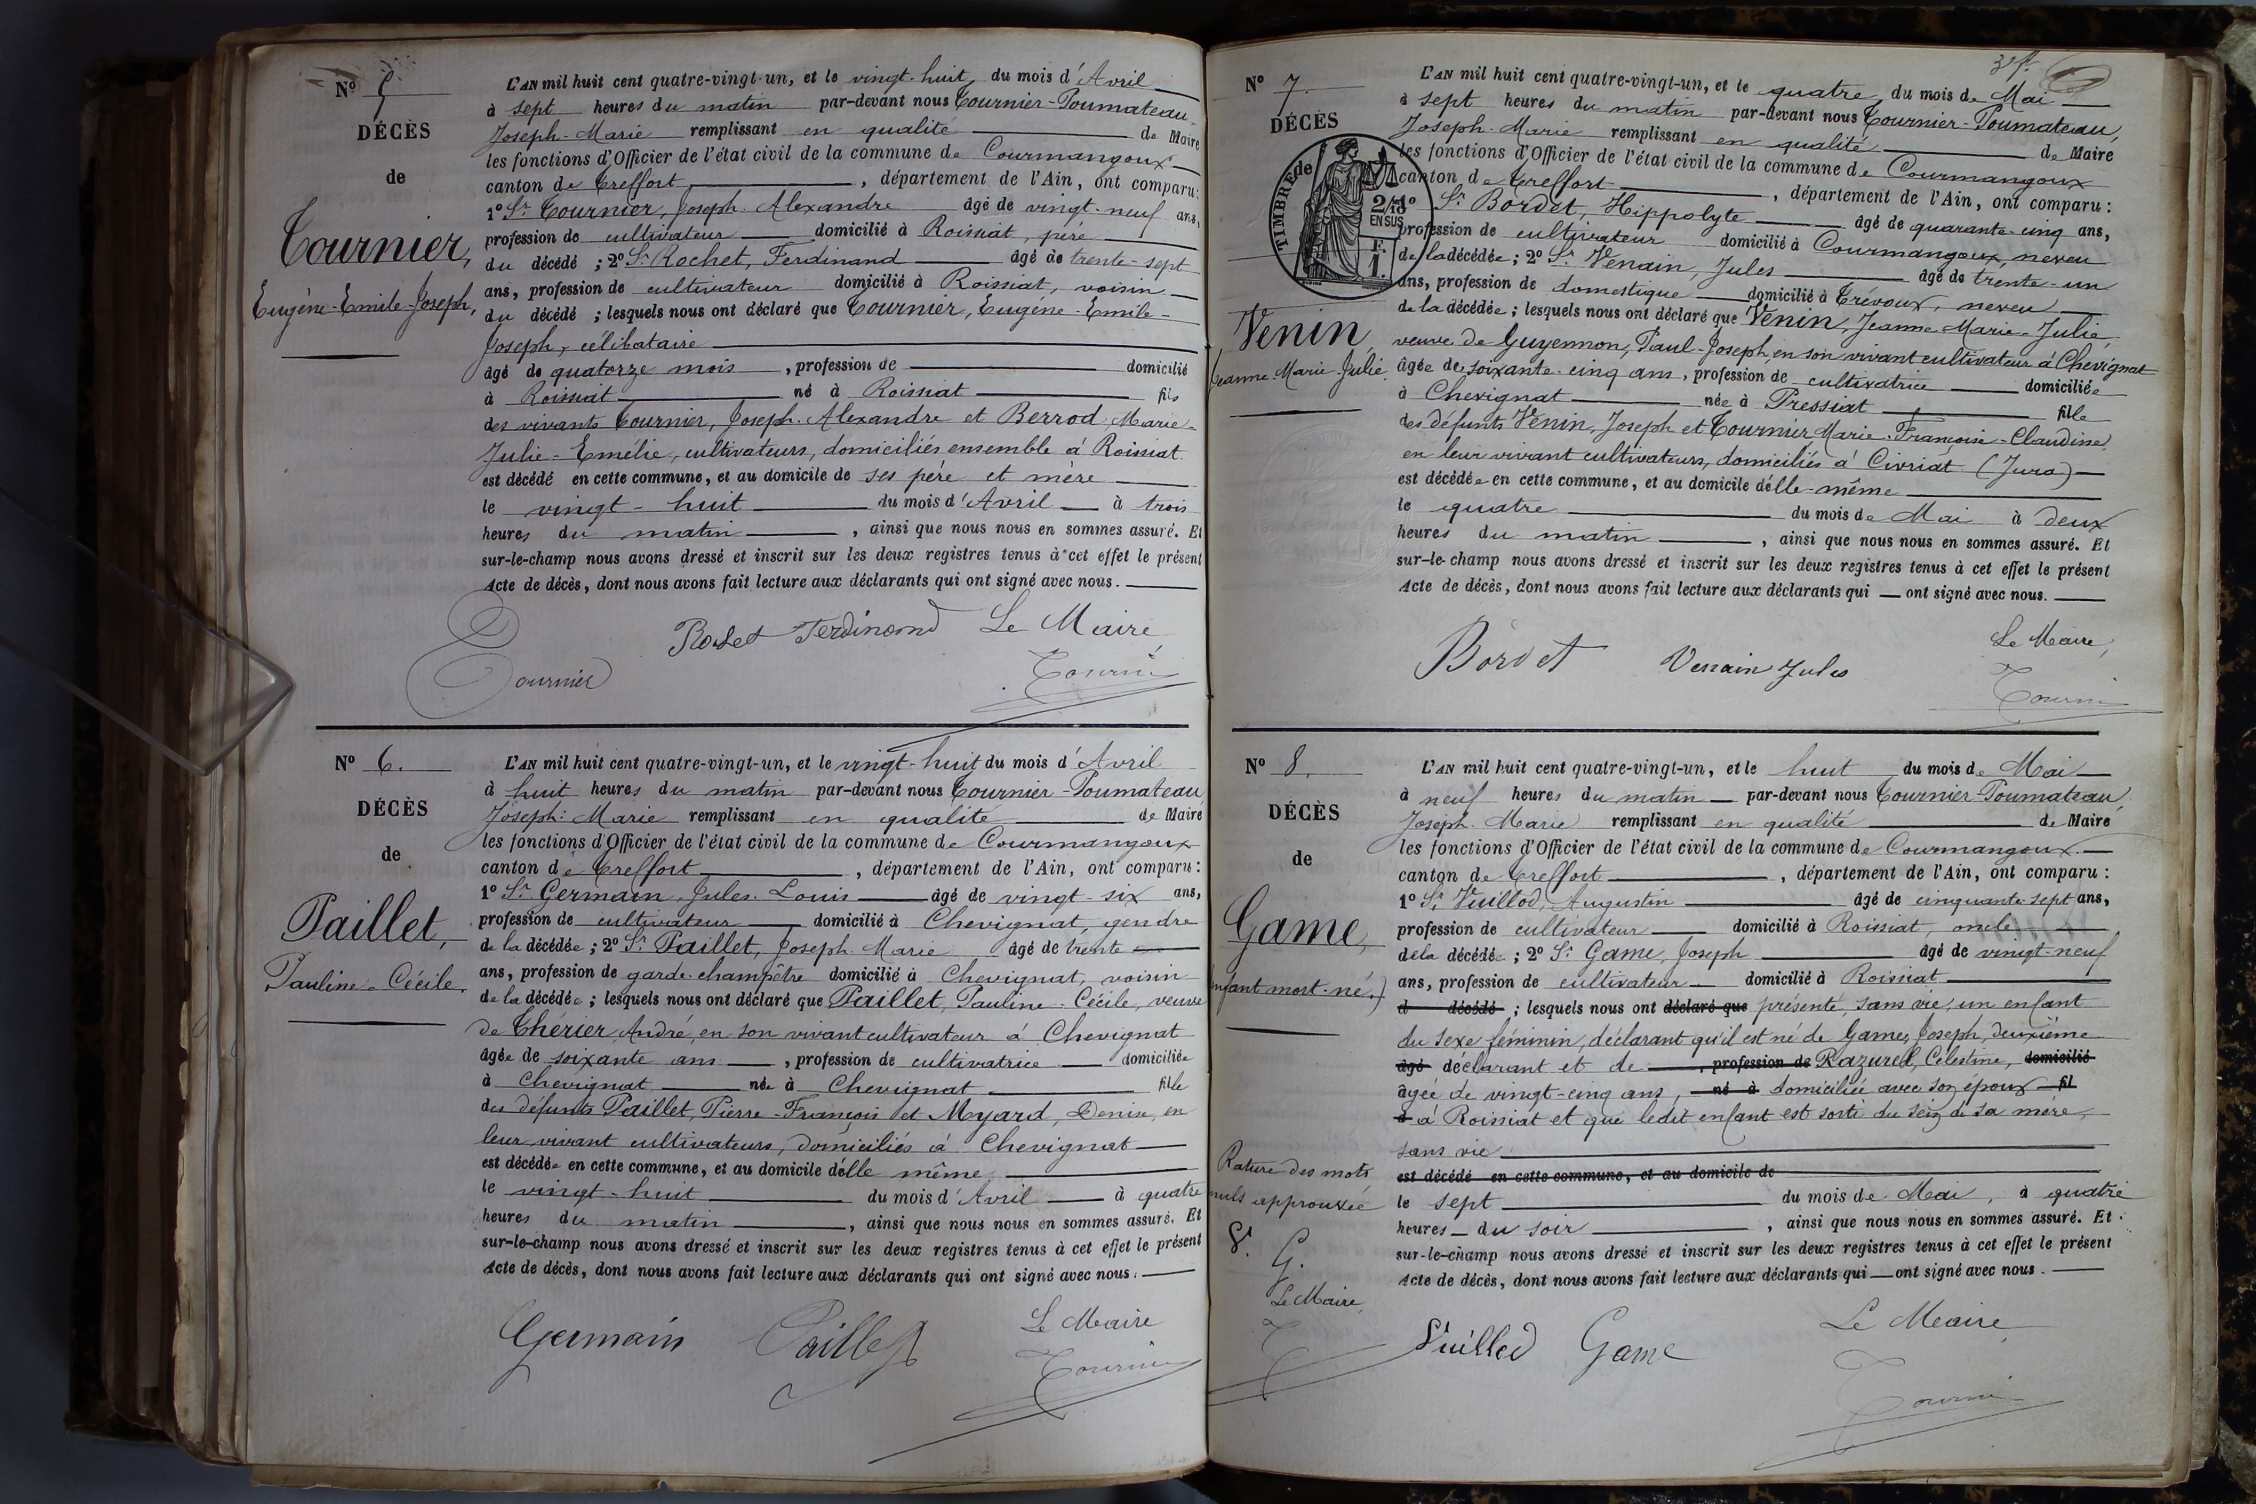 N° 5
DÉCÈS
de
Tournier,
Eugène-Emile-Joseph,
L'AN mil huit cent quatre-vingt-un, et le vingt-huit du mois d'Avril
à sept heures du matin par-devant nous Tournier-Poumateau
Joseph-Marie remplissant en qualité de Maire
les fonctions d'Officier de l'état civil de la commune de Courmangoux
canton de Treffort, département de l'Ain, ont comparu:
1° Sr Tournier, Joseph-Alexandre âgé de vingt-neuf ans,
profession de cultivateur domicilié à Roissiat, père
du décédé ; 2° Sr Rochet, Ferdinand âgé de trente-sept
ans, profession de cultivateur domicilié à Roissiat, voisin
du décédé ; lesquels nous ont déclaré que Tournier, Eugène-Emile-
Joseph, célibataire
âgé de quatorze mois, profession de domicilié
à Roissiat né à Roissiat fils
des vivants Tournier, Joseph-Alexandre et Berrod, Marie-
Julie-Emélie, cultivateurs, domiciliés ensemble à Roissiat
est décédé en cette commune, et au domicile de ses père et mère
le vingt-huit du mois d'Avril à trois
heures du matin, ainsi que nous nous en sommes assuré. Et
sur-le-champ nous avons dressé et inscrit sur les deux registres tenus à cet effet le présent
Acte de décès, dont nous avons fait lecture aux déclarants qui ont signé avec nous.
Rochet Ferdinand Le Maire
Tournier Tournier
N° 6.
DÉCÈS
de
Paillet,
Pauline-Cécile,
L'AN mil huit cent quatre-vingt-un, et le vingt-huit du mois d'Avril
à huit heures du matin par-devant nous Tournier-Poumateau
Joseph-Marie remplissant en qualité de Maire
les fonctions d'Officier de l'état civil de la commune de Courmangoux
canton de Treffort, département de l'Ain, ont comparu:
1° Sr Germain, Jules-Louis âgé de vingt-six ans,
profession de cultivateur domicilié à Chevignat, gendre
de la décédée ; 2° Sr Paillet, Joseph-Marie âgé de trente
ans, profession de garde-champêtre domicilié à Chevignat, voisin
de la décédée ; lesquels nous ont déclaré que Paillet, Pauline-Cécile, veuve
de Thérier, André, en son vivant cultivateur à Chevignat
âgée de soixante ans, profession de cultivatrice domiciliée
à Chevignat née à Chevignat fille
des défunts Paillet, Pierre-François et Myard, Denise, en
leur vivant cultivateurs, domiciliés à Chevignat
est décédée en cette commune, et au domicile d'elle même
le vingt-huit du mois d'Avril à quatre
heures du matin, ainsi que nous nous en sommes assuré. Et
sur-le-champ nous avons dressé et inscrit sur les deux registres tenus à cet effet le présent
Acte de décès, dont nous avons fait lecture aux déclarants qui ont signé avec nous.
Germain Paillet Le Maire
Tournier
N° 7.
DÉCÈS
TIMBRE de
2/10
EN SUS
Venin
Jeanne-Marie-Julie
L'AN mil huit cent quatre-vingt-un, et le quatre du mois de Mai
à sept heures du matin par-devant nous Tournier-Poumateau,
Joseph-Marie remplissant en qualité de Maire
les fonctions d'Officier de l'état civil de la commune de Courmangoux
canton de Treffort, département de l'Ain, ont comparu:
1° Sr Bordet, Hippolyte âgé de quarante-cinq ans,
profession de cultivateur domicilié à Courmangoux, neveu
de la décédée ; 2° Sr Venain, Jules âgé de trente-un
ans, profession de domestique domicilié à Trévoux, neveu
de la décédée ; lesquels nous ont déclaré que Venin, Jeanne-Marie-Julie
veuve de Guyennon, Paul-Joseph, en son vivant cultivateur à Chevignat
âgée de soixante-cinq ans, profession de cultivatrice domiciliée
à Chevignat née à Pressiat fille
des défunts Venin, Joseph et Tournier Marie-Françoise-Claudine
en leur vivant cultivateurs, domiciliés à Civriat (Jura)
est décédée en cette commune, et au domicile d'elle-même
le quatre du mois de Mai à deux
heures du matin, ainsi que nous nous en sommes assuré. Et
sur-le-champ nous avons dressé et inscrit sur les deux registres tenus à cet effet le présent
Acte de décès, dont nous avons fait lecture aux déclarants qui ont signé avec nous.
Bordet Venain Jules Le Maire,
Tournier
N° 8.
DÉCÈS
de
Game,
enfant mort-né.)
L'AN mil huit cent quatre-vingt-un, et le huit du mois de Mai
à neuf heures du matin par-devant nous Tournier-Poumateau,
Joseph-Marie remplissant en qualité de Maire
les fonctions d'Officier de l'état civil de la commune de Courmangoux
canton de Treffort, département de l'Ain, ont comparu:
1° Sr Vuillod, Augustin âgé de cinquante-sept ans,
profession de cultivateur domicilié à Roissiat, oncle
de la décédée ; 2° Sr Game, Joseph âgé de vingt-neuf
ans, profession de cultivateur domicilié à Roissiat
d décédé ; lesquels nous ont déclaré que présenté, sans vie, un enfant
du sexe féminin, déclarant qu'il est né de Game, Joseph, deuxième
âgé déclarant et de, profession de Razurel, Célestine, domicilié
âgée de vingt-cinq ans, né à domiciliée avec son époux fil
d à Roissiat et que ledit enfant est sorti du sein de sa mère,
sans vie
est décédé en cette commune, et au domicile de
le sept du mois de Mai, à quatre
heures du soir, ainsi que nous nous en sommes assuré. Et
sur-le-champ nous avons dressé et inscrit sur les deux registres tenus à cet effet le présent
Acte de décès, dont nous avons fait lecture aux déclarants qui ont signé avec nous.
Rature des mots
nuls approuvée
G.
Le Maire,
Vuillod Game Le Maire
Tournier